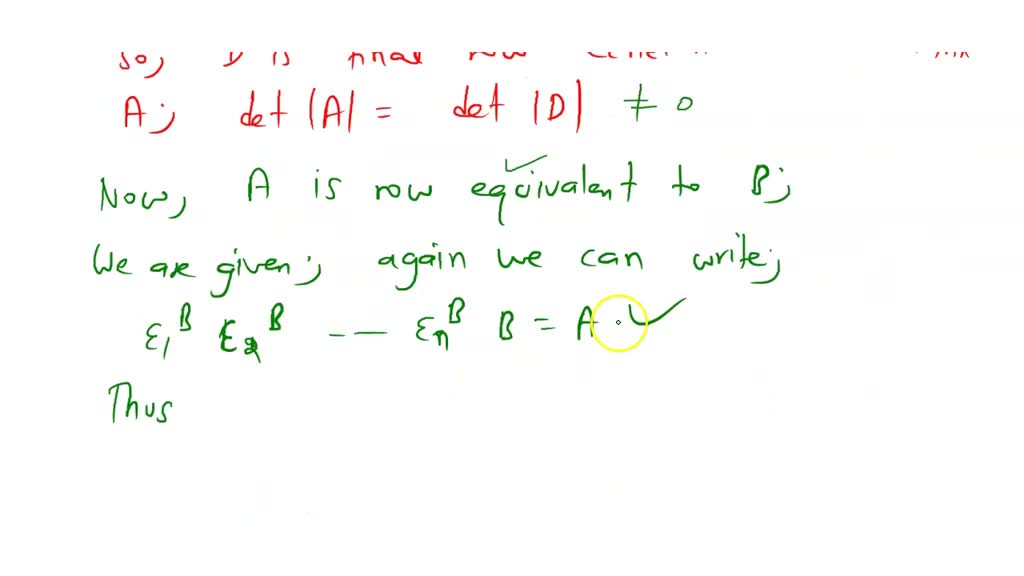 so, D is
A; det |A| = det |D| ≠ 0
Now, A is row equivalent to B;
We are given; again we can write;
ε₁ᴮ ε₂ᴮ -- — εₙᴮ B = A
Thus